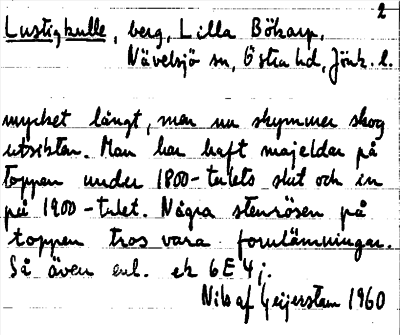 2
Lustigkulle, berg, Lilla Bökarp,
Nävelsjö sn, Östra hd, Jönk. l.
mycket långt, men nu skymmer skog
utsikten. Man har haft majeldar på
toppen under 1800-talets slut och in
på 1900-talet. Några stenrösen på
toppen tros vara fornlämningar.
Så även enl. ek 6E4j.
Nils af Geijerstam 1960